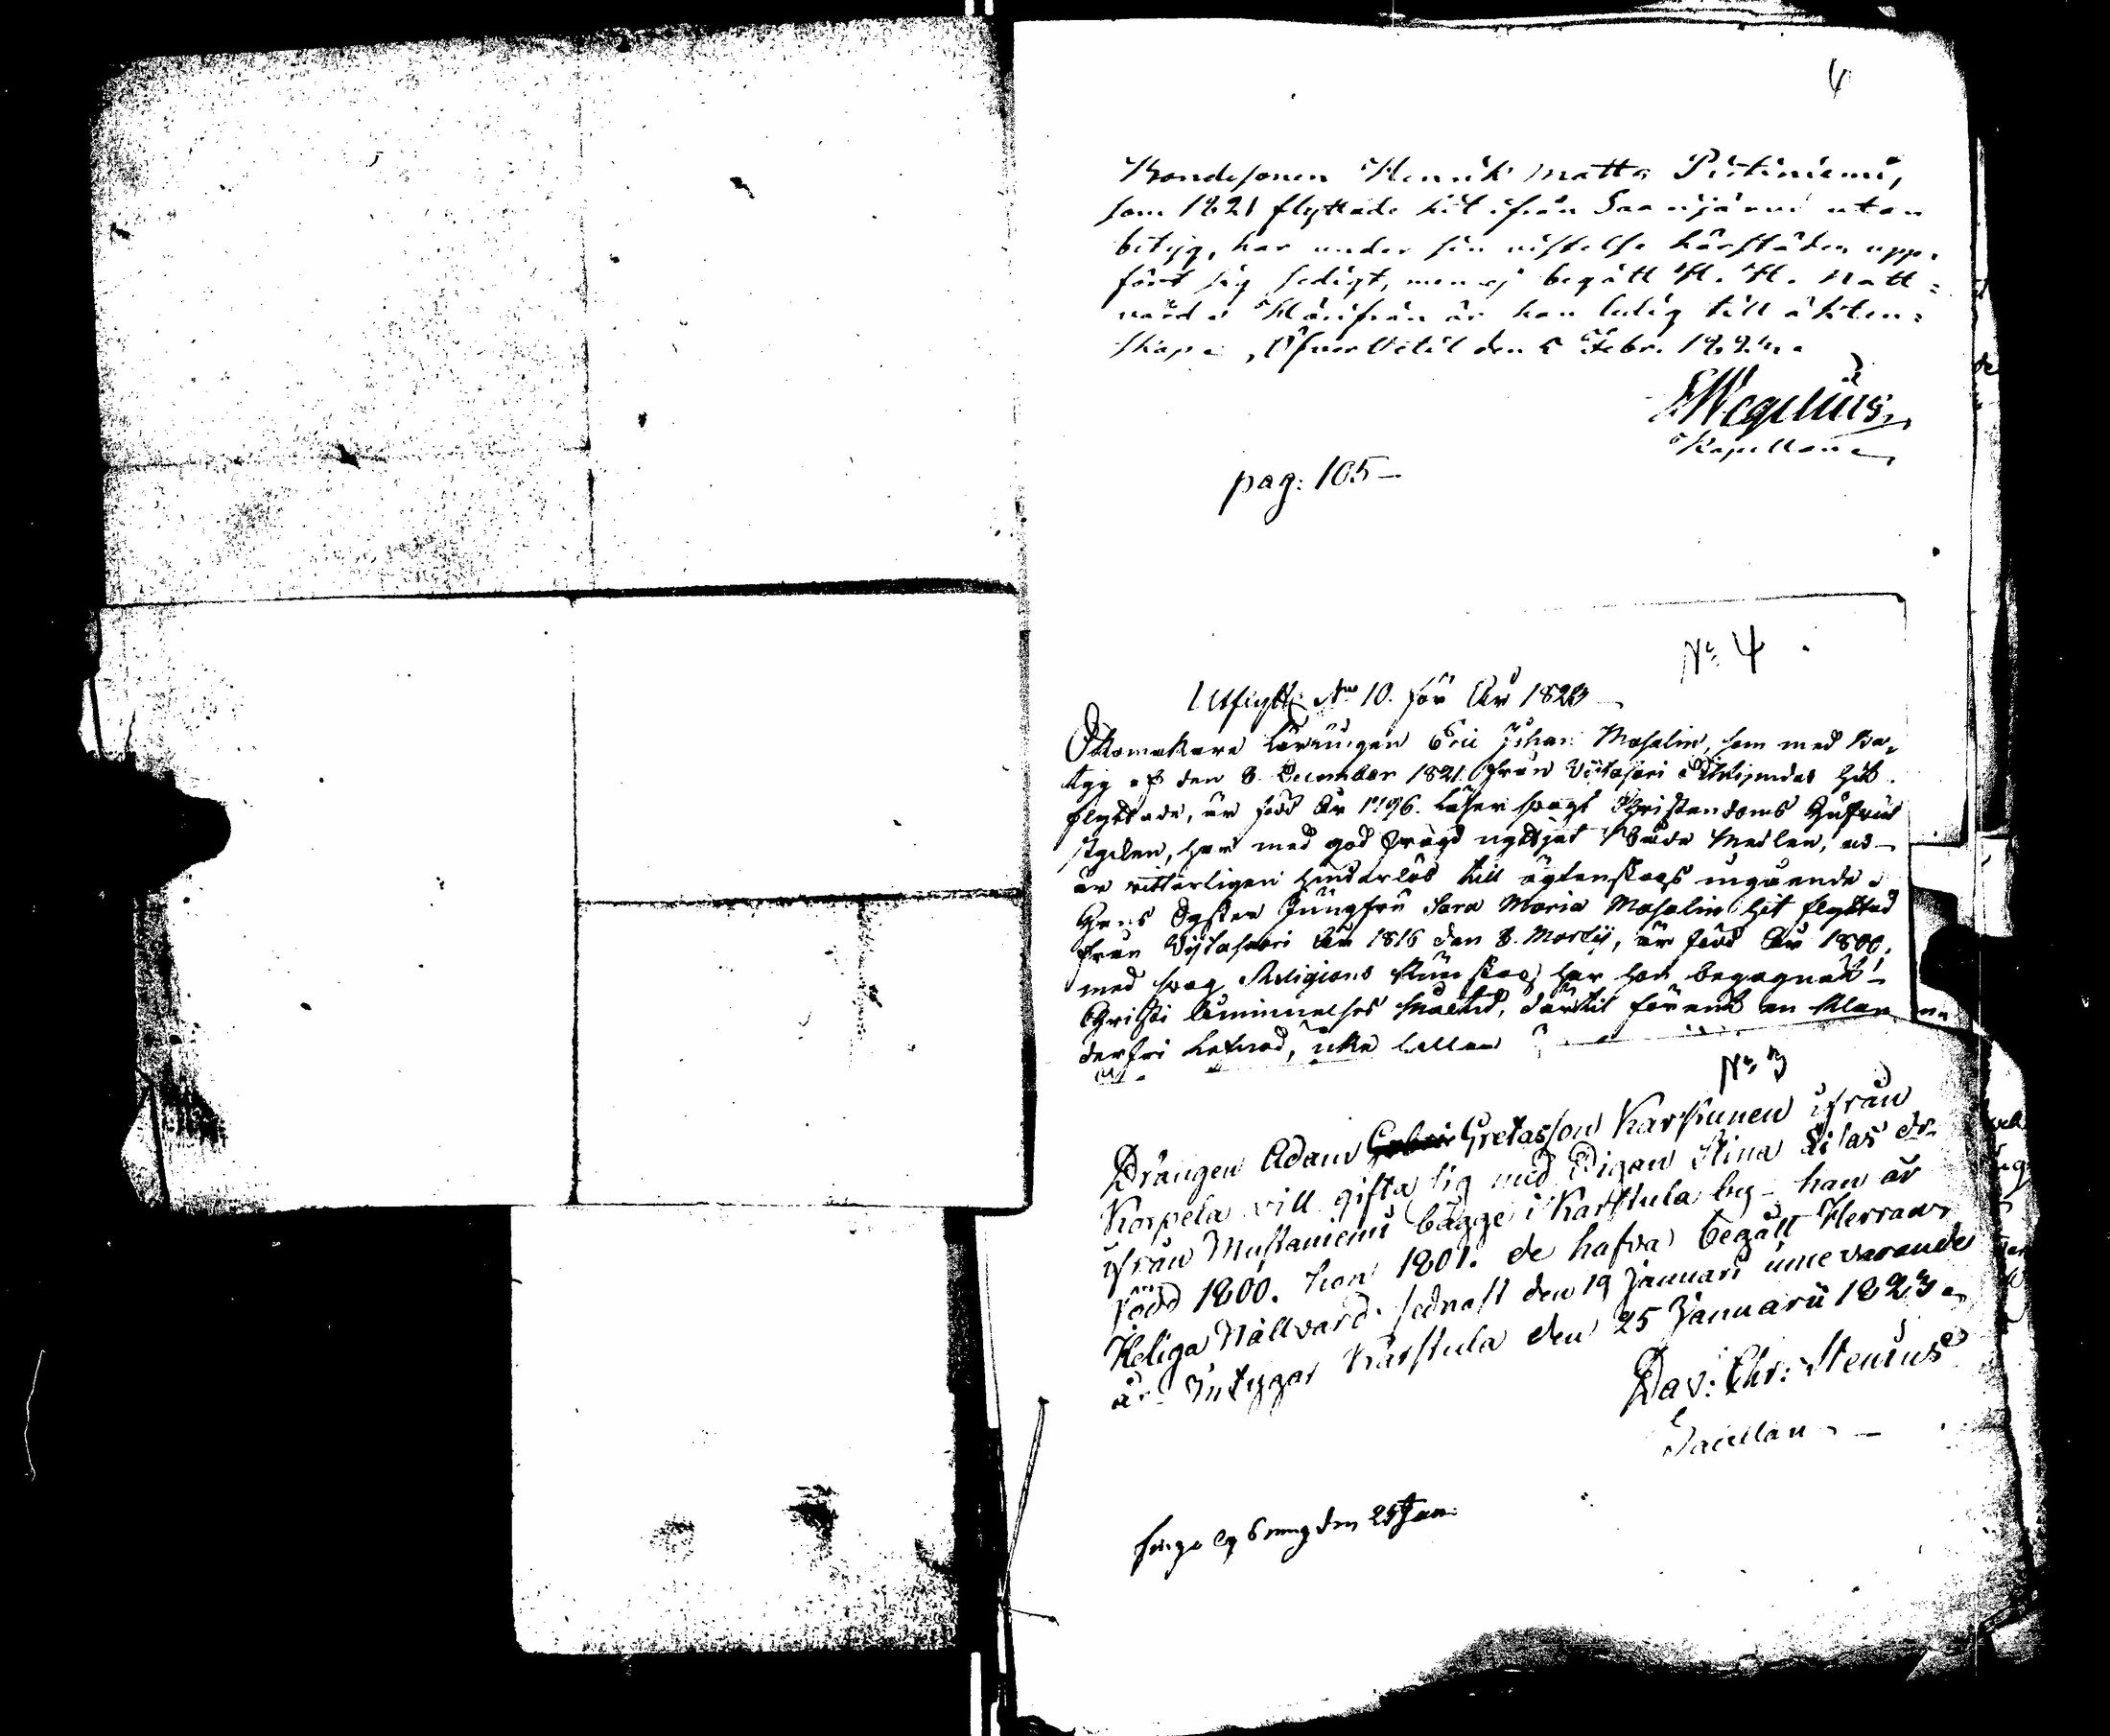 4
Bondesonen Henrik Matts Pistiniemi,
som 1821 flyttade hit ifrån Saarijärvi utan
betyg, har under sin vistelse härstädes upp-
fört sig sedigt, men ej begått H. H. Natt-
vard. Härifrån är han ledig till äkten-
skap. Öfver Vetil den 5 Febr. 182
Wegelius
Kapellan
pag: 105 —
No 4
Utflytt. No 10. för År 1823
Skomakare Lärlingen Eric Johan Masalin, som med Be-
tyg af den 8 December 1821 från Viitasaari hit
flyttade, är född År 1796. Läser svagt Christendoms
stycken, har med god frägd nyttjat Nåde Medlen, och
är vitterligen hinderlös till ägtenskaps ingående.
Hans Syster Jungfru Sara Maria Masalin hit flyttad
från Viitasaari År 1816 den 8. Martii, är född År 1800,
med svag Religions kunskap har hon begagnat
Christi åminnelses Måltid, därtil förent en klan
derfri Lefnad,
No 3
Drängen Adam Gretasson Karkunen ifrån
Korpela vill gifta sig med Pigan Stina Silas dr
ifrån Mustaniemi bägge i Karstula by — han är
född 1800. hon 1801. de hafva begått Herrans
Heliga Nattvard sednast den 19 Januari innevarande
år. Intygar Karstula den 25 Januarii 1823.
Dav: Chr: Stenius
Sacellan
den 25 Jan: